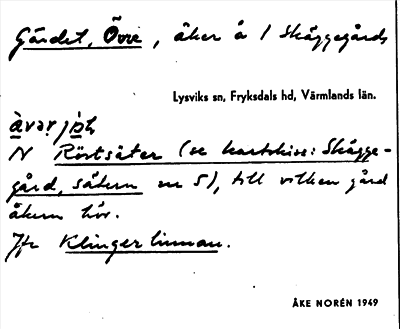 Gärdet, Övre, åker å 1 Skäggegårds
Lysviks sn, Fryksdals hd, Värmlands län.
N Röstsäter (se kartskiss: Skägge-
gård, sätern nr 5), till vilken gård
åkern hör.
Jfr Klingerlinnan.
ÅKE NORÉN 1949